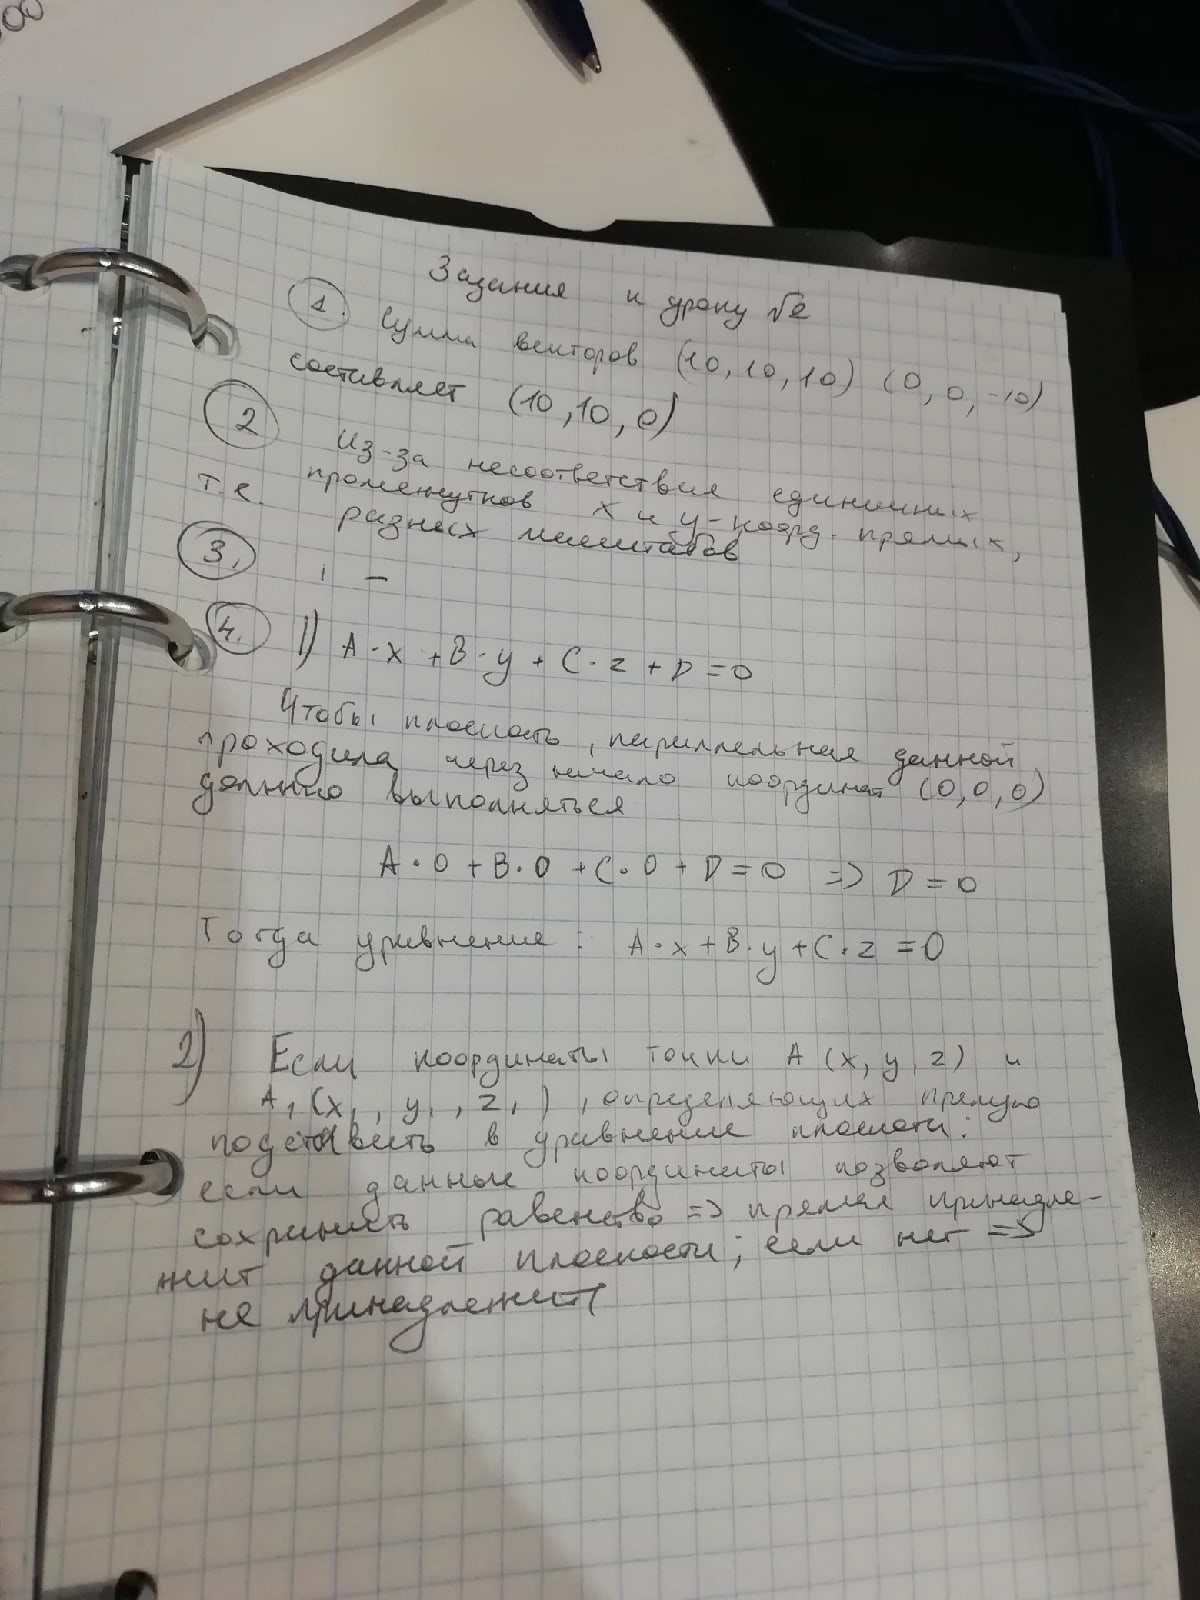 Задания к уроку №2
1. Сумма векторов (10, 10, 10) (0, 0, -10)
составляет (10, 10, 0)
2 Из-за несоответствия единичных
промежутков x и y-коорд. прямых,
т.е. разных масштабов
3. –
4. 1) A·x + B·y + C·z + D = 0
Чтобы плоскость, параллельная данной
проходила через начало координат (0, 0, 0)
должно выполняться
A·0 + B·0 + C·0 + D = 0 => D = 0
Тогда уравнение: A·x + B·y + C·z = 0
2) Если координаты точки A (x, y, z) и
A₁ (x₁, y₁, z₁), определяющих прямую
подставить в уравнение плоскости:
если данные координаты позволяют
сохранить равенство => прямая принадле-
жит данной плоскости; если нет =>
не принадлежит